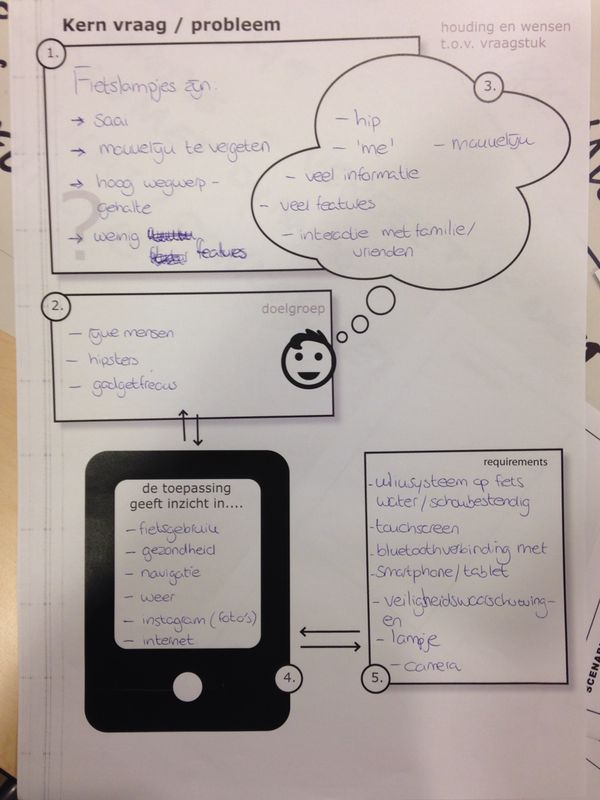 Kern vraag / probleem
houding en wensen
t.o.v. vraagstuk
1.
Fietslampjes zijn:
→ saai
→ makkelijk te vergeten
→ hoog wegwerp-
gehalte
→ weinig
features
?
3.
- hip
- 'me'
- makkelijk
- veel informatie
- veel features
- interactie met familie/
vrienden
2.
doelgroep
- rijke mensen
- hipsters
- gadgetfreaks
de toepassing
geeft inzicht in....
- fietsgebruik
- gezondheid
- navigatie
- weer
- instagram (foto's)
- internet
4.
requirements
- kliksysteem op fiets
water/schokbestendig
- touchscreen
- bluetoothverbinding met
- smartphone/tablet
- veiligheidswaarschuwing-
en
- lampje
- camera
5.